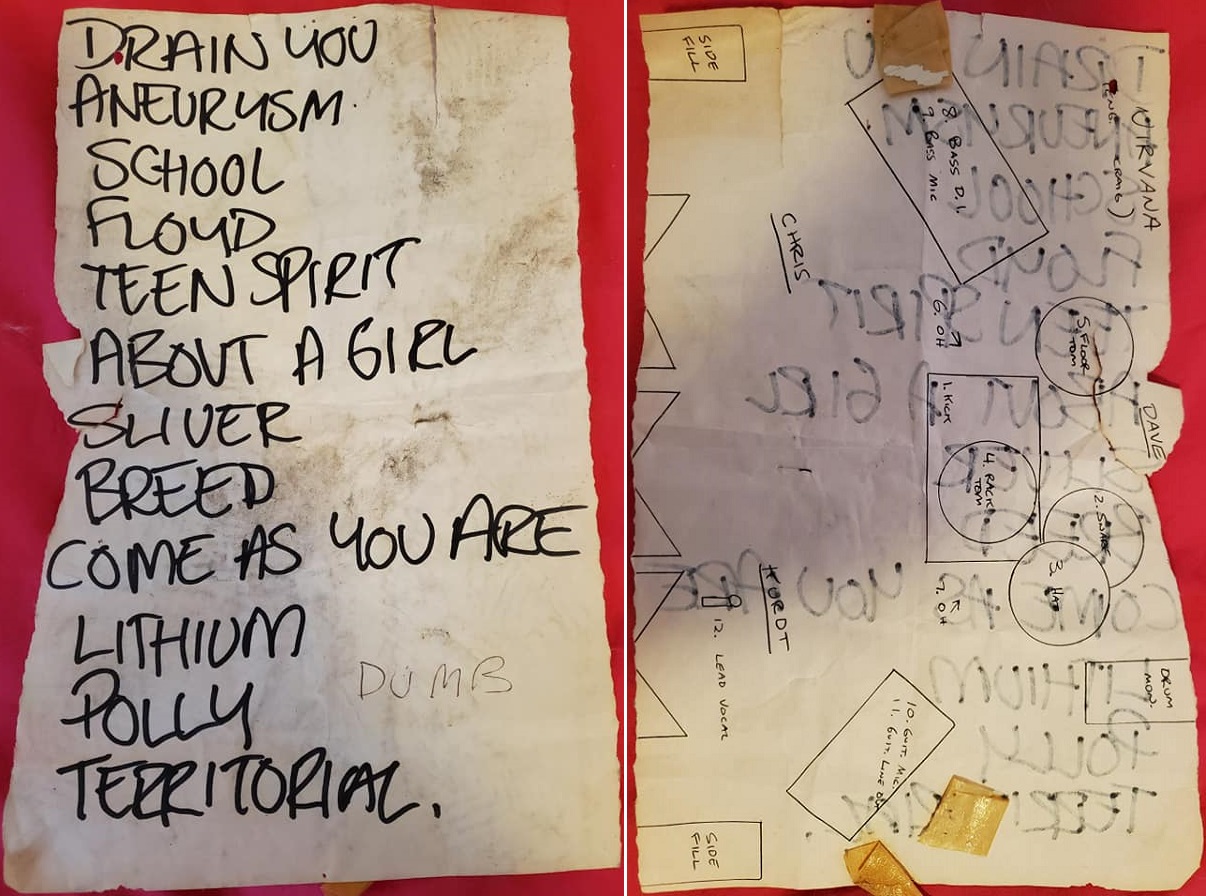 DRAIN YOU
ANEURYSM.
SCHOOL
FLOYD
TEEN SPIRIT
ABOUT A GIRL
SLIVER
BREED
COME AS YOU ARE
LITHIUM
DUMB
POLLY
TERRITORIAL.
SIDE
FILL
NIRVANA
CRAIG)
8. BASS D.I.
9. BASS MIC
CHRIS
6. OH
5. FLOOR
TOM
DAVE
1. KICK
4. RACK
TOM
2. SNARE
3. HAT
7. OH
KURDT
12. LEAD VOCAL
DRUM
MON.
10. GUIT. MIC.
11. GUIT. LINE OUT
SIDE
FILL